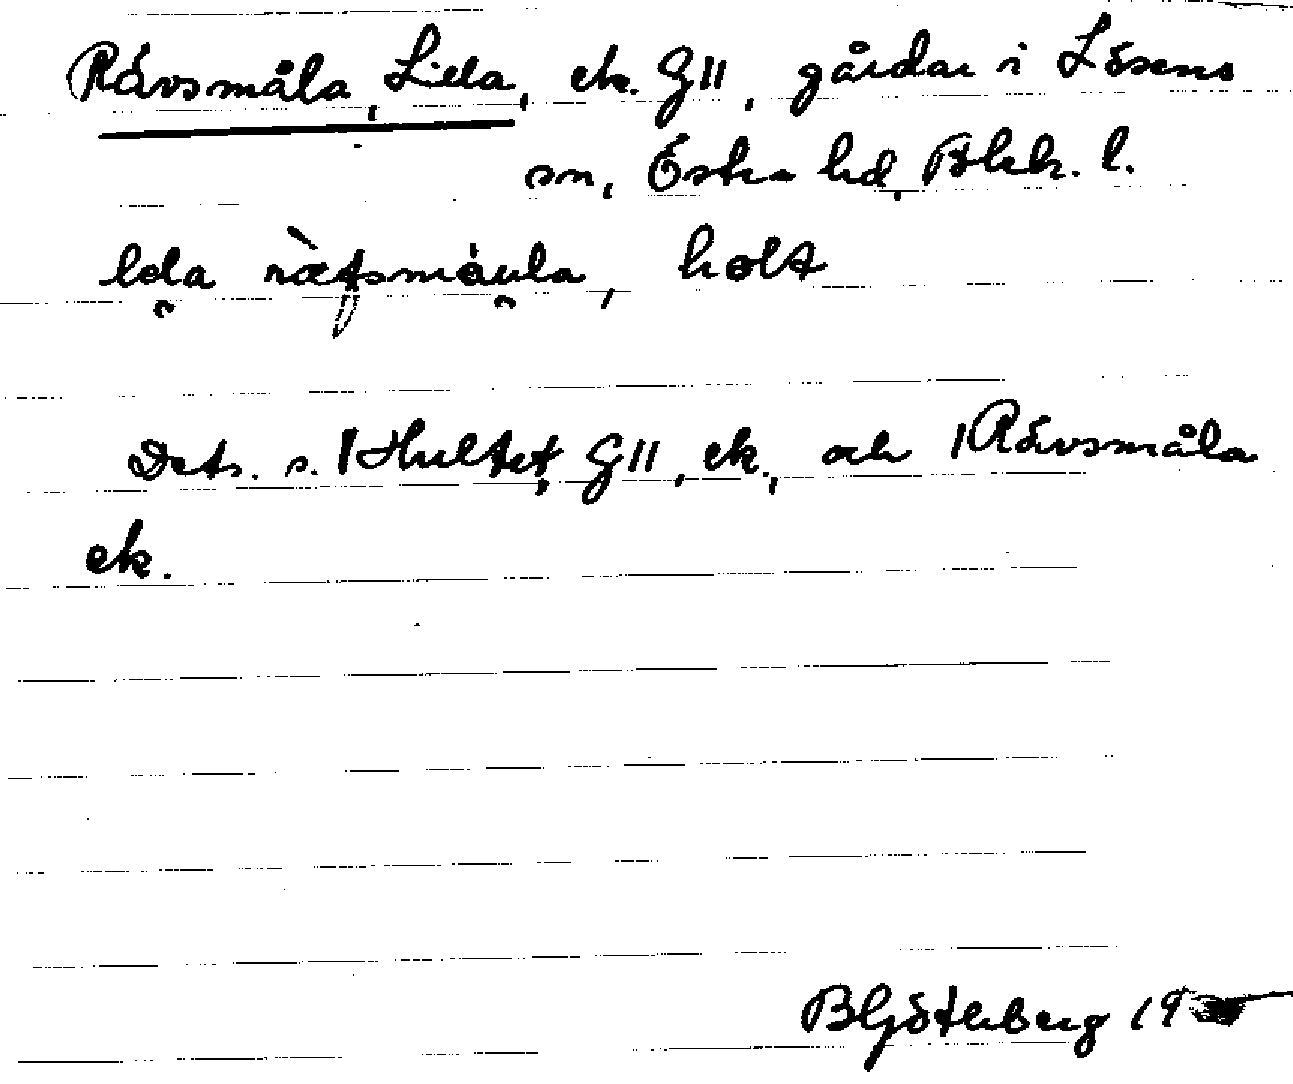 Rävsmåla, Lilla, ek. G11, gårdar i Lösens
sn, Östra hd, Blek. l.
lela ràfsmåula, holt
Dets. s. 1 Hultet, G11, ek., och 1 Rävsmåla
ek.
BGöteberg 19